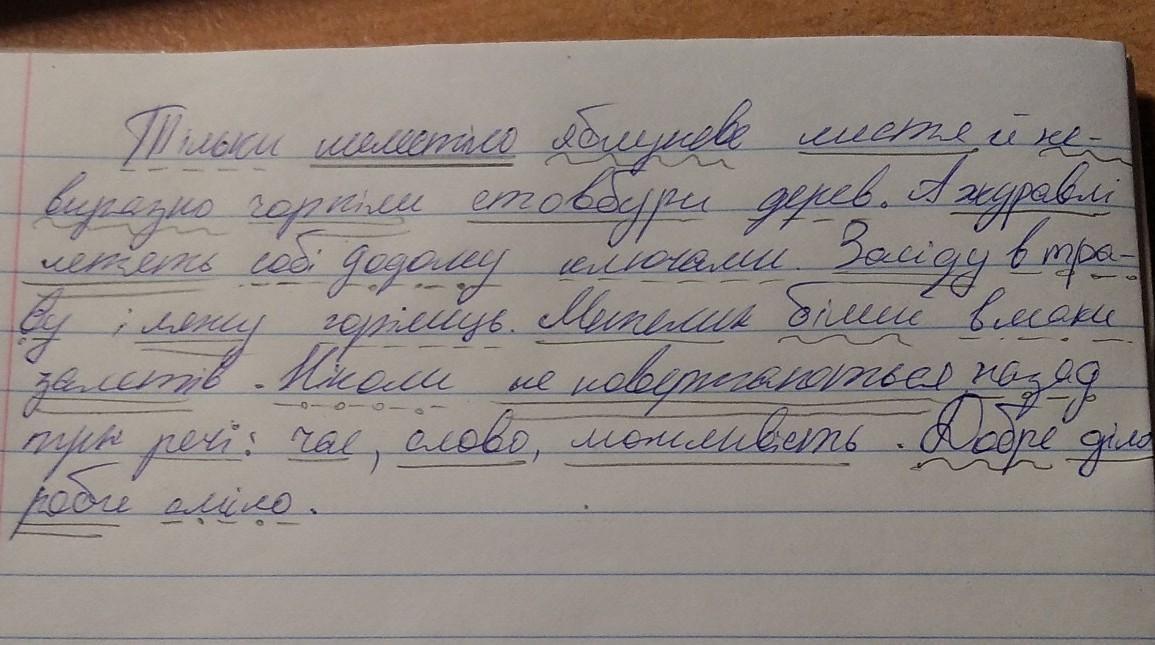 Тільки шелестіло яблуневе листя й не-
виразно чорніли стовбури дерев. А журавлі
летять собі додому ключами. Засіду в тра-
ву і лежу горілиць. Метелик білий в маки
залетів. Ніколи не повертаються назад
три речі: час, слово, можливість. Добре діло
роби сміло.